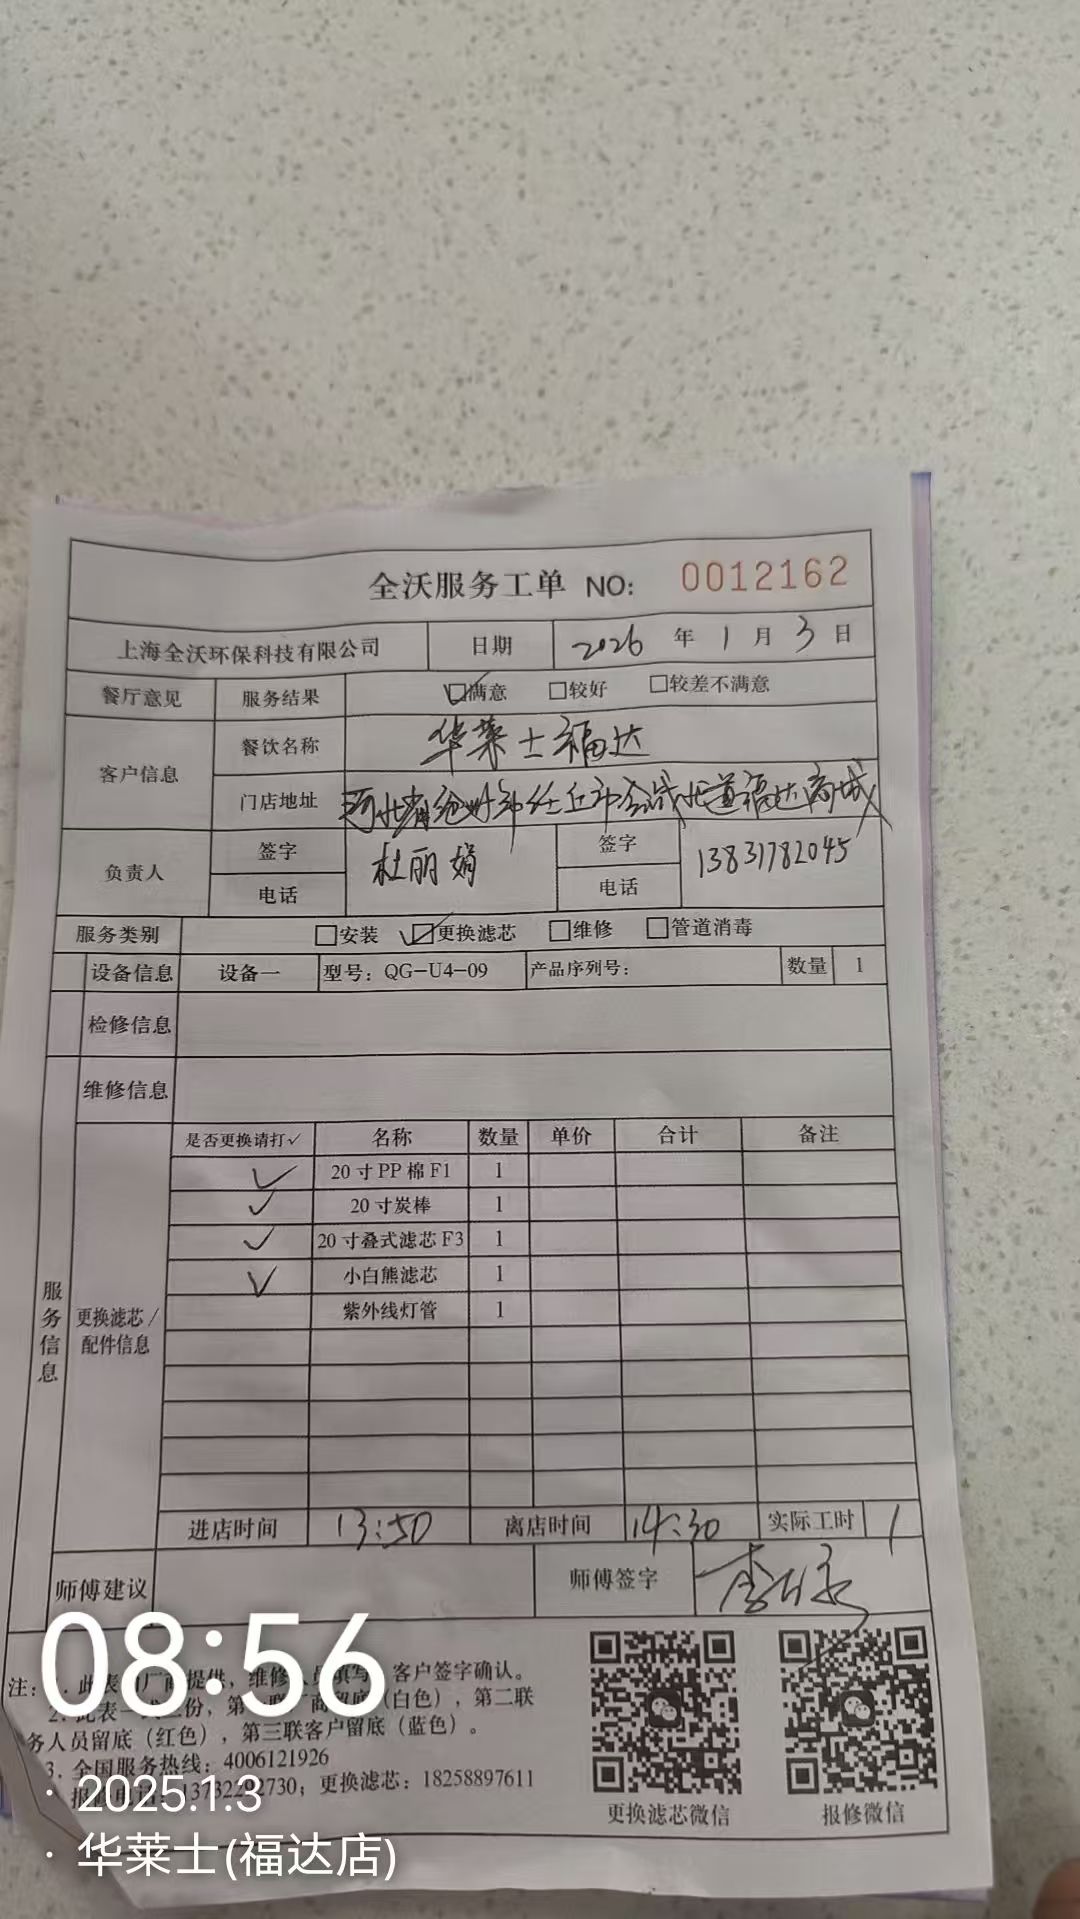 全沃服务工单 NO: 0012162
上海全沃环保科技有限公司 日期 2026 年 1 月 3 日
餐厅意见 服务结果 ☑满意 □较好 □较差不满意
客户信息 餐饮名称 华莱士福达
门店地址 河北省沧州市任丘市会战北道福达商城
负责人 签字 杜丽娟 签字
电话 电话 13831782045
服务类别 □安装 ☑更换滤芯 □维修 □管道消毒
设备信息 设备一 型号：QG-U4-09 产品序列号： 数量 1
检修信息
维修信息
服务信息
更换滤芯/配件信息
是否更换请打✓ 名称 数量 单价 合计 备注
✓ 20寸PP棉F1 1
✓ 20寸炭棒 1
✓ 20寸叠式滤芯F3 1
✓ 小白熊滤芯 1
紫外线灯管 1
进店时间 13:50 离店时间 14:30 实际工时 1
师傅建议 师傅签字
08:56
注： 此表 厂商提供，维修人员填写，客户签字确认。
2. 此表一式三份，第一联厂商留底（白色），第二联
务人员留底（红色），第三联客户留底（蓝色）。
3. 全国服务热线：4006121926
报修电话： 更换滤芯：18258897611
更换滤芯微信 报修微信
· 2025.1.3
· 华莱士(福达店)